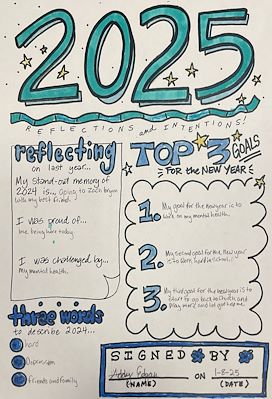 2025
REFLECTIONS and INTENTIONS!
reflecting
on last year...
My stand-out memory of
2024 is... Going to Zach bryan
with my best friend!
I was proud of...
me being here today
I was challenged by...
My mental health.
three words
to describe 2024...
hard
Depression
friends and family
TOP 3 GOALS
FOR THE NEW YEAR
1. My goal for the new year is to
work on my mental health.
2. My second goal for the New year
is to work hard in school.
3. My third goal for the new year is to
start to go back to church and
pray more and let god help me.
SIGNED BY
ON 1-8-25
(NAME) (DATE)